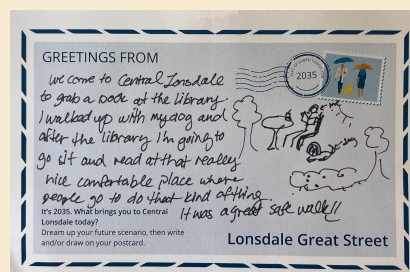 GREETINGS FROM
we come to Central Lonsdale
to grab a book at the library.
I walked up with my dog and
after the library I'm going to
go sit and read at that really
nice comfortable place where
people go to do that kind of thing.
It was a great safe walk!!
2035
me
my dog
It's 2035. What brings you to Central
Lonsdale today?
Dream up your future scenario, then write
and/or draw on your postcard.
Lonsdale Great Street